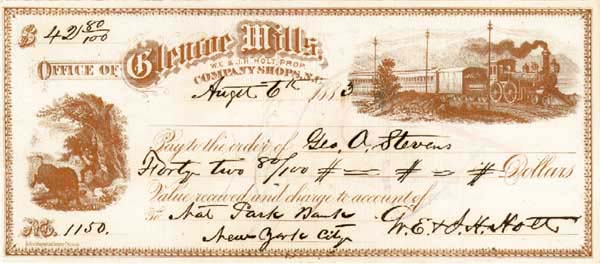 $ 42 80/100
OFFICE OF Glencoe Mills,
W.E. & J.H. HOLT, PROP.
COMPANY SHOPS, N.C.
Augst 6th 1883
Pay to the order of Geo. A. Stevens
Forty two 80/100 # — # — # Dollars
Value received and charge to account of
To Nat Park Bank W.E. & J.H. Holt
New York City
No. 1150.